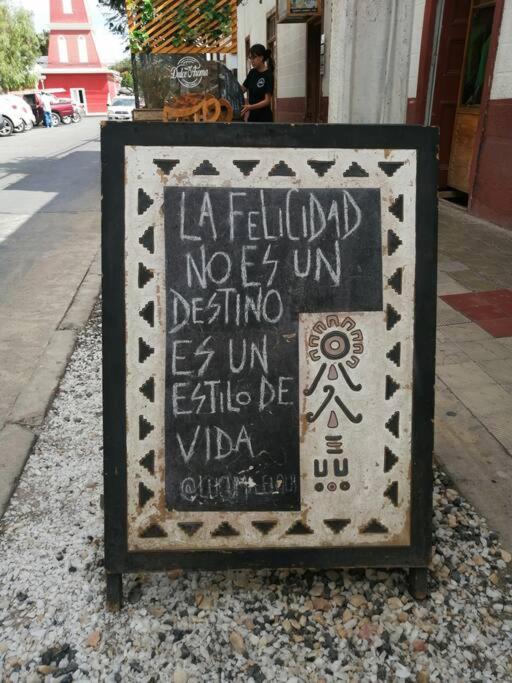 Dulce Aroma
LA FELICIDAD
NO ES UN
DESTINO
ES UN
ESTILO DE
VIDA